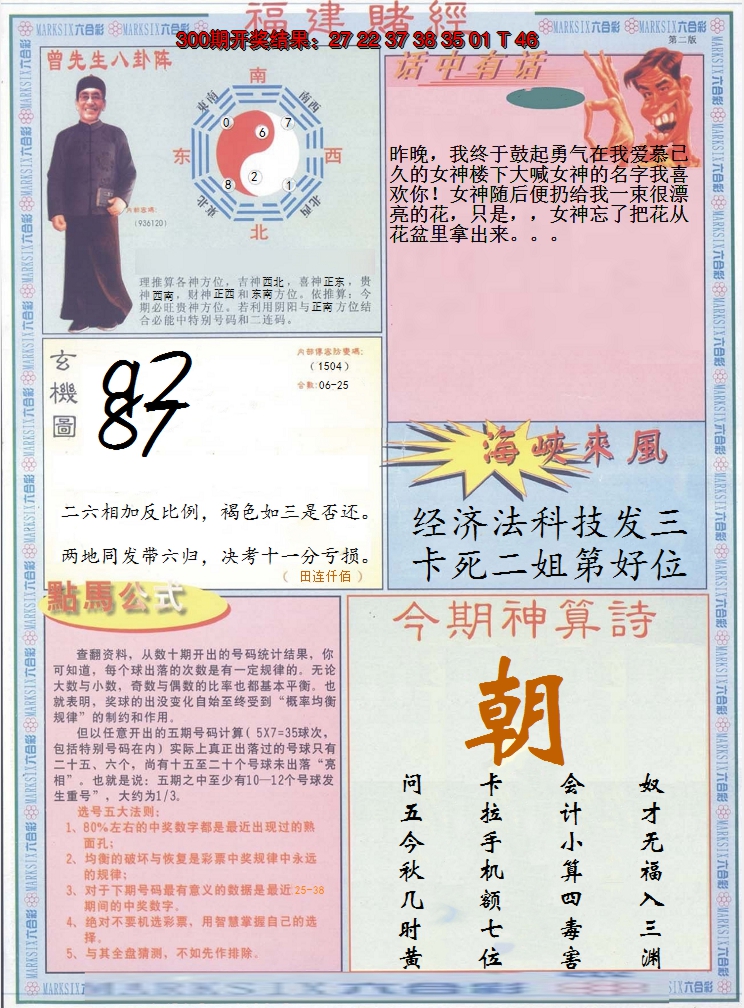 福建賭經
300期开奖结果：27 22 37 38 35 01 T 46
第二版
MARKSIX六合彩
曾先生八卦阵
南
東南
南西
0
7
6
东
西
8
2
1
東北
北西
北
内部密碼:
(936120)
理推算各神方位，吉神西北，喜神正东，贵
神西南，财神正西和东南方位。依推算：今
期必旺贵神方位。若利用阴阳与正南方位结
合必能中特别号码和二连码。
话中有话
昨晚，我终于鼓起勇气在我爱慕已
久的女神楼下大喊女神的名字我喜
欢你！女神随后便扔给我一束很漂
亮的花，只是，，女神忘了把花从
花盆里拿出来。。。
玄機圖
87
(1504)
合数:06-25
二六相加反比例，褐色如三是否还。
两地同发带六归，决考十一分亏损。
（ 田连仟佰 ）
海峽來風
经济法科技发三
卡死二姐第好位
點馬公式
查翻资料，从数十期开出的号码统计结果，你
可知道，每个球出落的次数是有一定规律的。无论
大数与小数，奇数与偶数的比率也都基本平衡。也
就表明，奖球的出没变化自始至终受到“概率均衡
规律”的制约和作用。
但以任意开出的五期号码计算( 5X7=35球次，
包括特别号码在内) 实际上真正出落过的号球只有
二十五、六个，尚有十五至二十个号球未出落“亮
相”。也就是说：五期之中至少有10—12个号球发
生重号”，大约为1/3。
选号五大法则：
1、80%左右的中奖数字都是最近出现过的熟
面孔；
2、均衡的破坏与恢复是彩票中奖规律中永远
的规律；
3、对于下期号码最有意义的数据是最近25-38
期间的中奖数字。
4、绝对不要机选彩票，用智慧掌握自己的选
择。
5、与其全盘猜测，不如先作排除。
今期神算詩
朝
问五今秋几时黄
卡拉手机额七位
会计小算四毒害
奴才无福入三渊